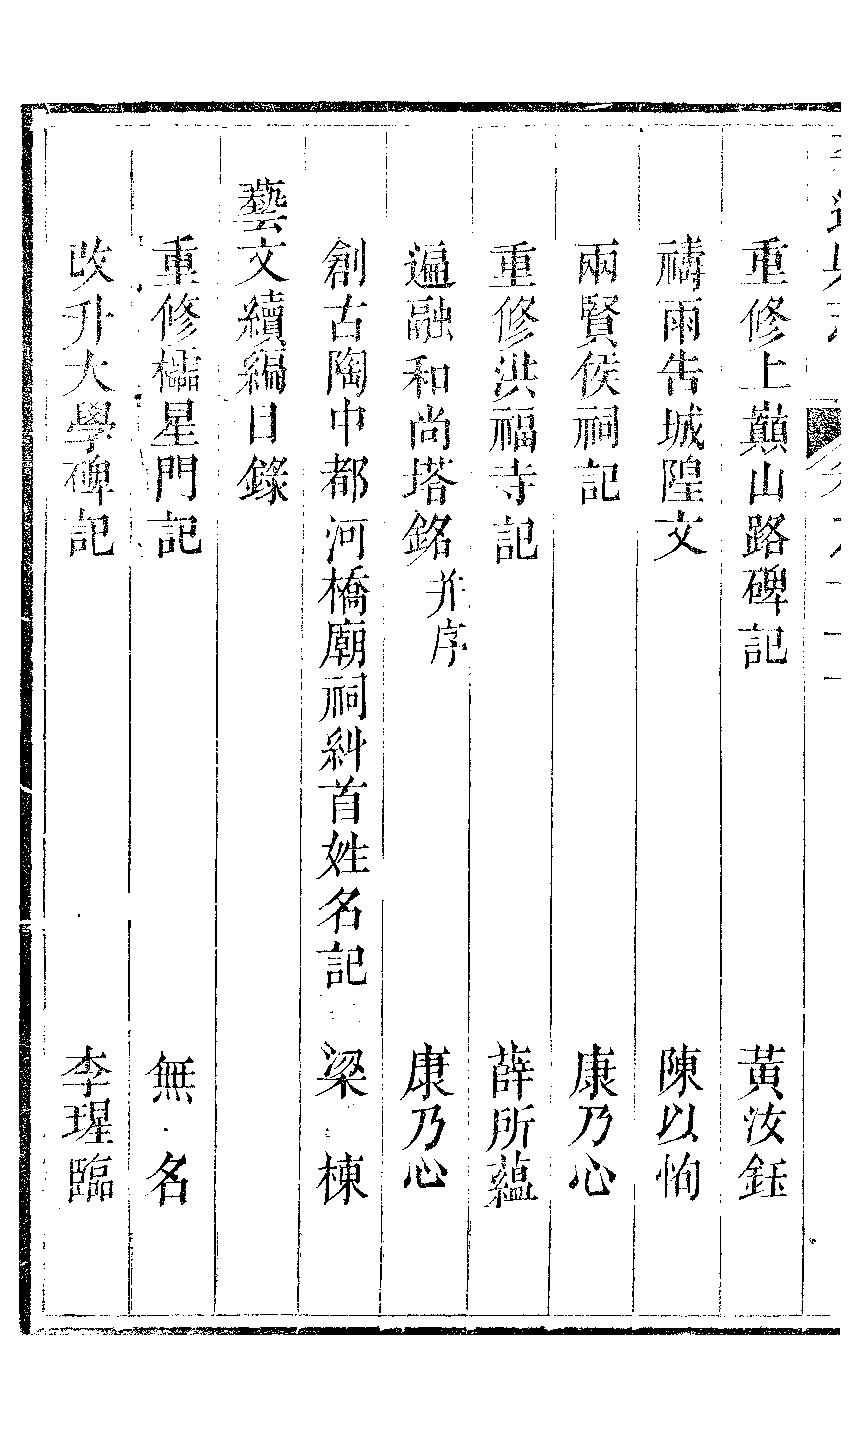 重修上巔山路碑記 黃汝鈺
禱雨告城隍文 陳以恂
兩賢侯祠記 康乃心
重修洪福寺記 薛所蘊
遍融和尚塔銘 并序 康乃心
創古陶中都河橋廟祠糾首姓名記 梁棟
藝文續編目錄
重修櫺星門記 無名
改升大學碑記 李瑆臨